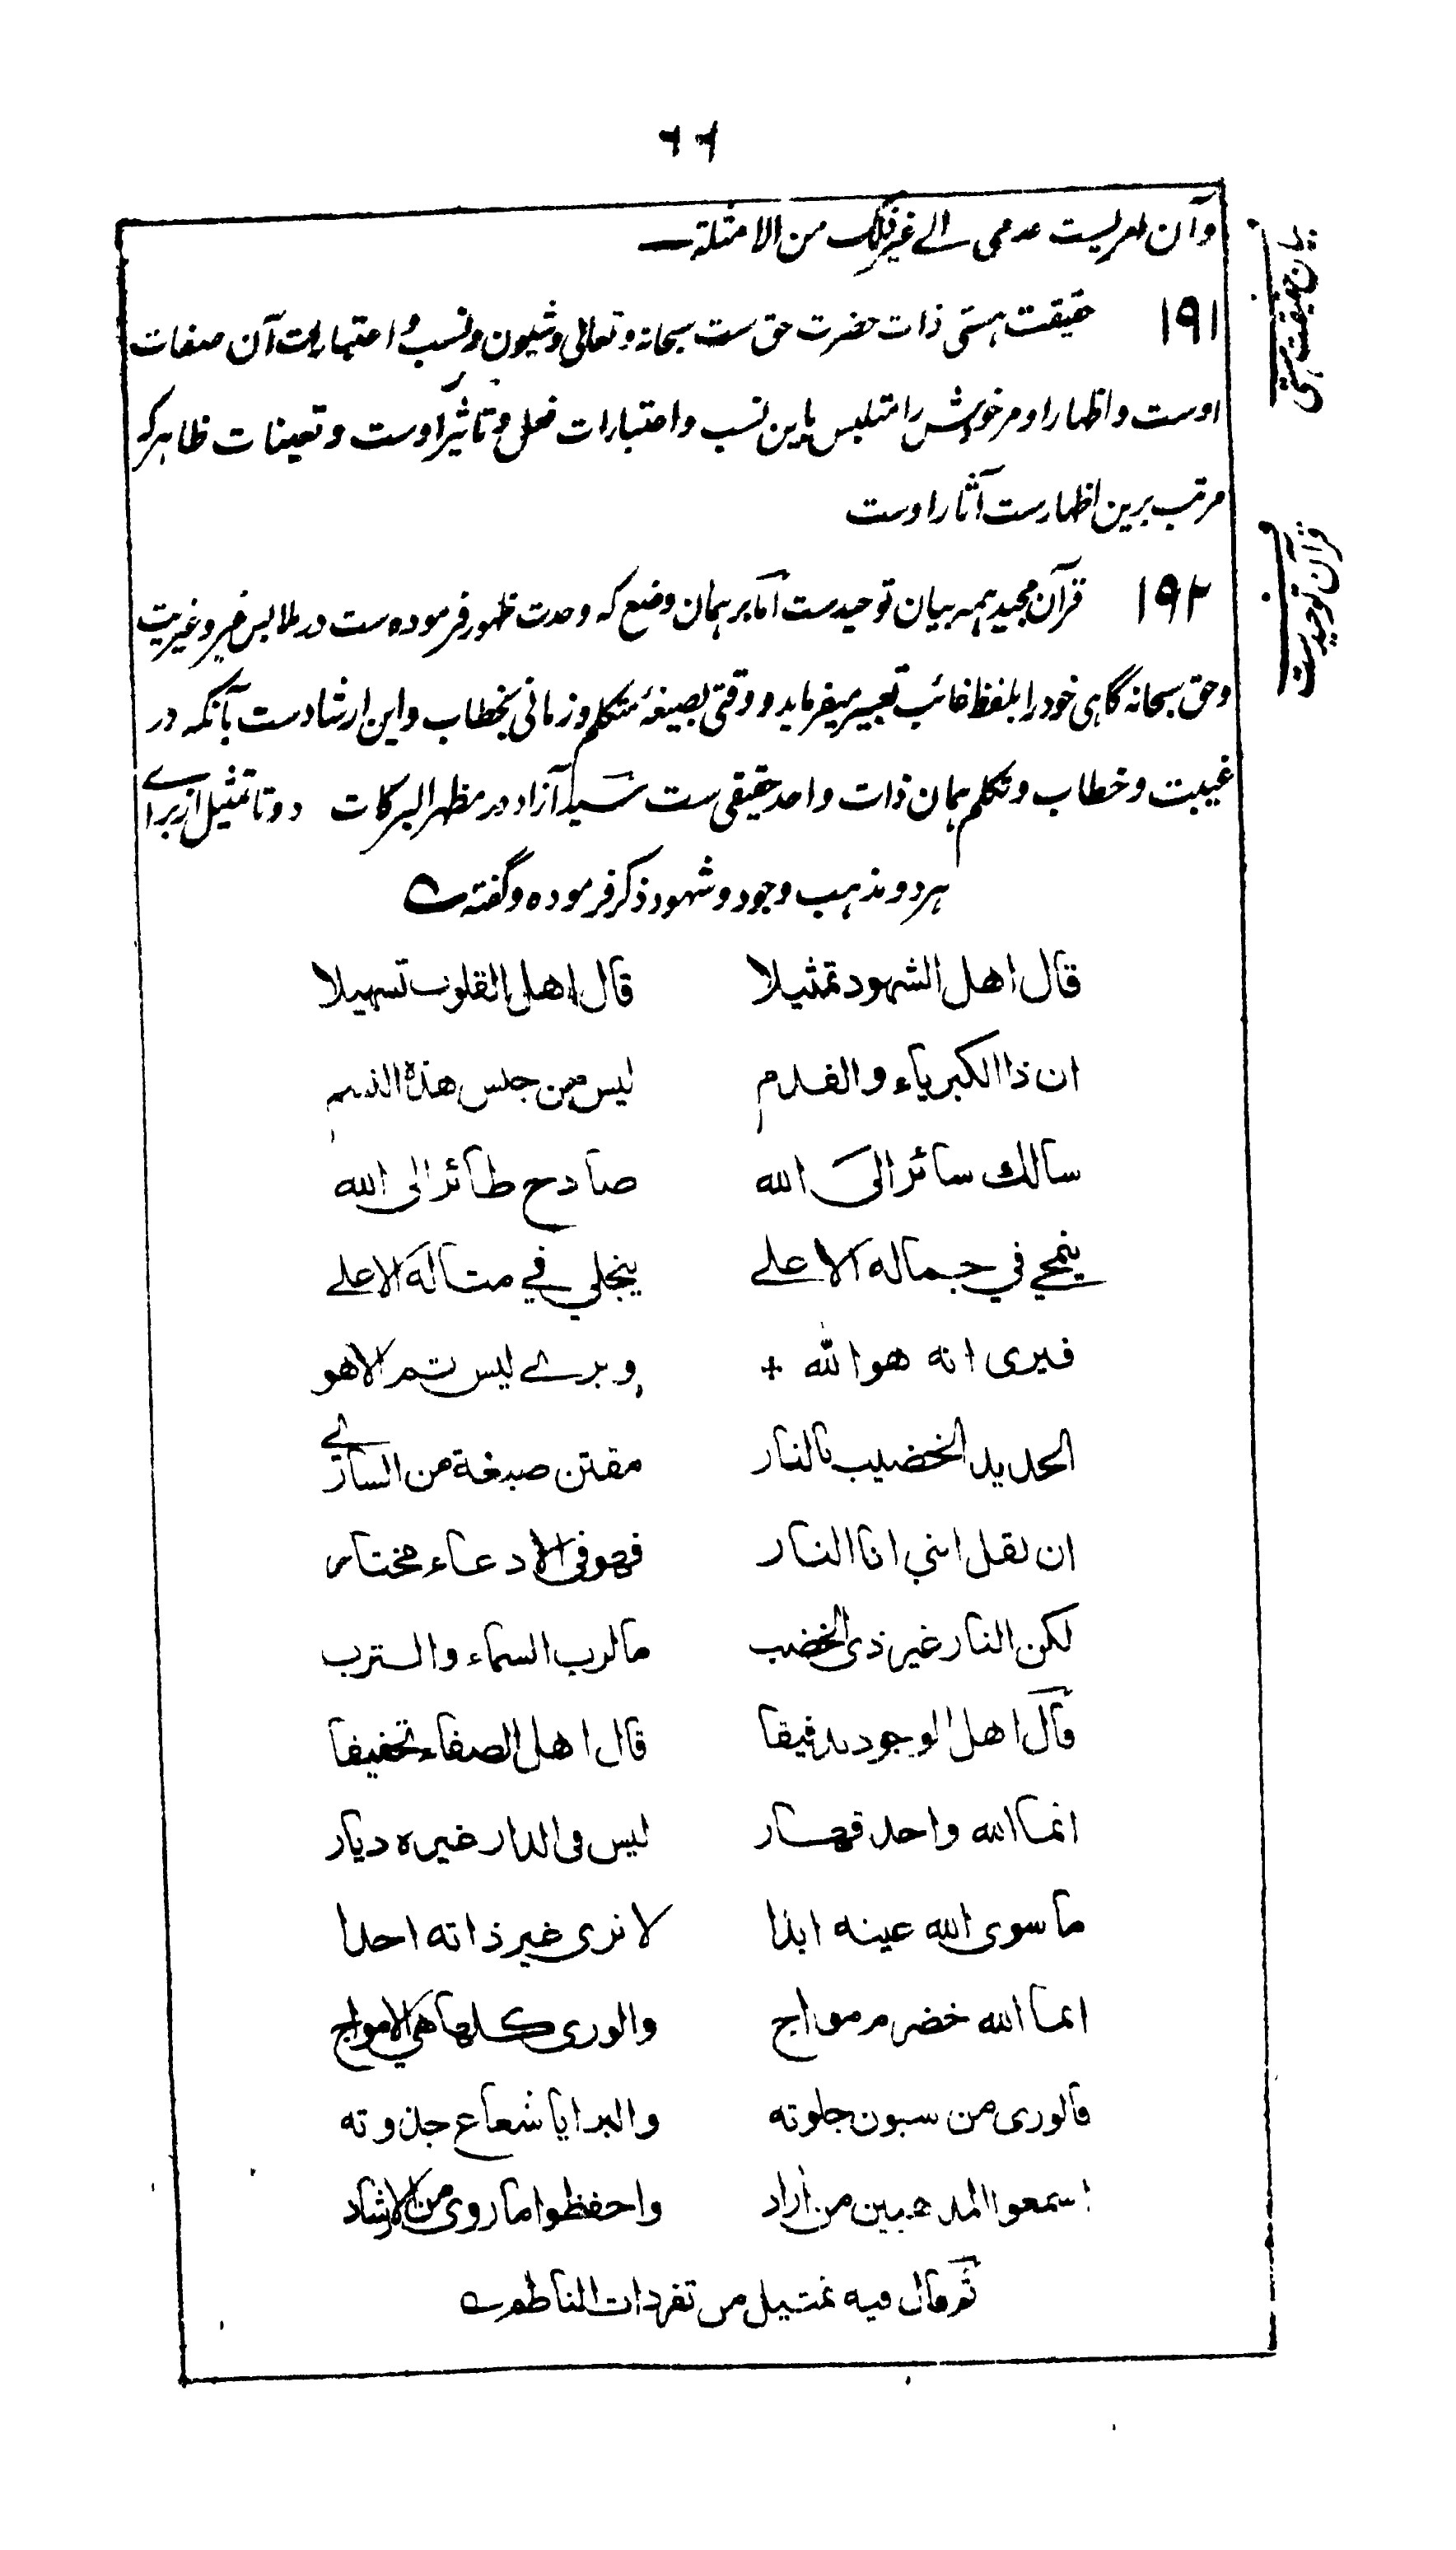 ۶۶
وآن امریست عدمی الے غیر ذلک من الامثلة
۱۹۱ حقیقت ہستی ذات حضرت حق ست سبحانہ وتعالی وشیون ونسب و اعتبارات آن صفات
اوست و اظہار او مر خویش را متلبس باین نسب و اعتبارات فعل و تاثیر اوست و تعینات ظاہر کہ
مرتب برین اظہارست آثار اوست
بیان حقیقت ہستی
۱۹۲ قرآن مجید ہمہ بیان توحیدست اما بر ہمان وضع کہ وحدت ظہور فرمودہ ست در ملابس غیر و غیریت
وحق سبحانہ گاہی خود را بلفظ غائب تعبیر میفرماید و وقتی بصیغۂ متکلم و زمانی بخطاب و این ارشادست بآنکہ در
غیبت و خطاب و تکلم ہمان ذات واحد حقیقی ست سید آزاد در مظہر البرکات دو تا تمثیل از براے
ہر دو مذہب وجود و شہود ذکر فرمودہ و گفتہ
قرآن توحیدست
قال اهل الشهود تمثيلا قال اهل القلوب تسهيلا
ان ذا الكبرياء والقدم ليس من جنس هذه النسم
سالك سائر الى الله صادح طائر الى الله
ينمحي في جماله الاعلے ينجلي في مثاله الاعلے
فيرى انه هو الله + ويرے ليس ثم الا هو
الحديد الخضيب بالنار مقتن صبغة من الساري
ان يقل انني انا النار فهو في الادعاء مختار
لكن النار غير ذى الخضب ما لرب السماء والترب
قال اهل الوجود ترفيقا قال اهل الصفاء تخفيفا
انما الله واحد قهار ليس في الدار غيره ديار
ما سوى الله عينه ابدا لا نرى غير ذاته احدا
انما الله خضرم مواج والورى كلها هي الامواج
فالورى من جلوته والبرايا شعاع جذوته
اسمعوا المذهبين من آزاد واحفظوا ما روى من الارشاد
ثم قال فيه تمثيل من تفردات